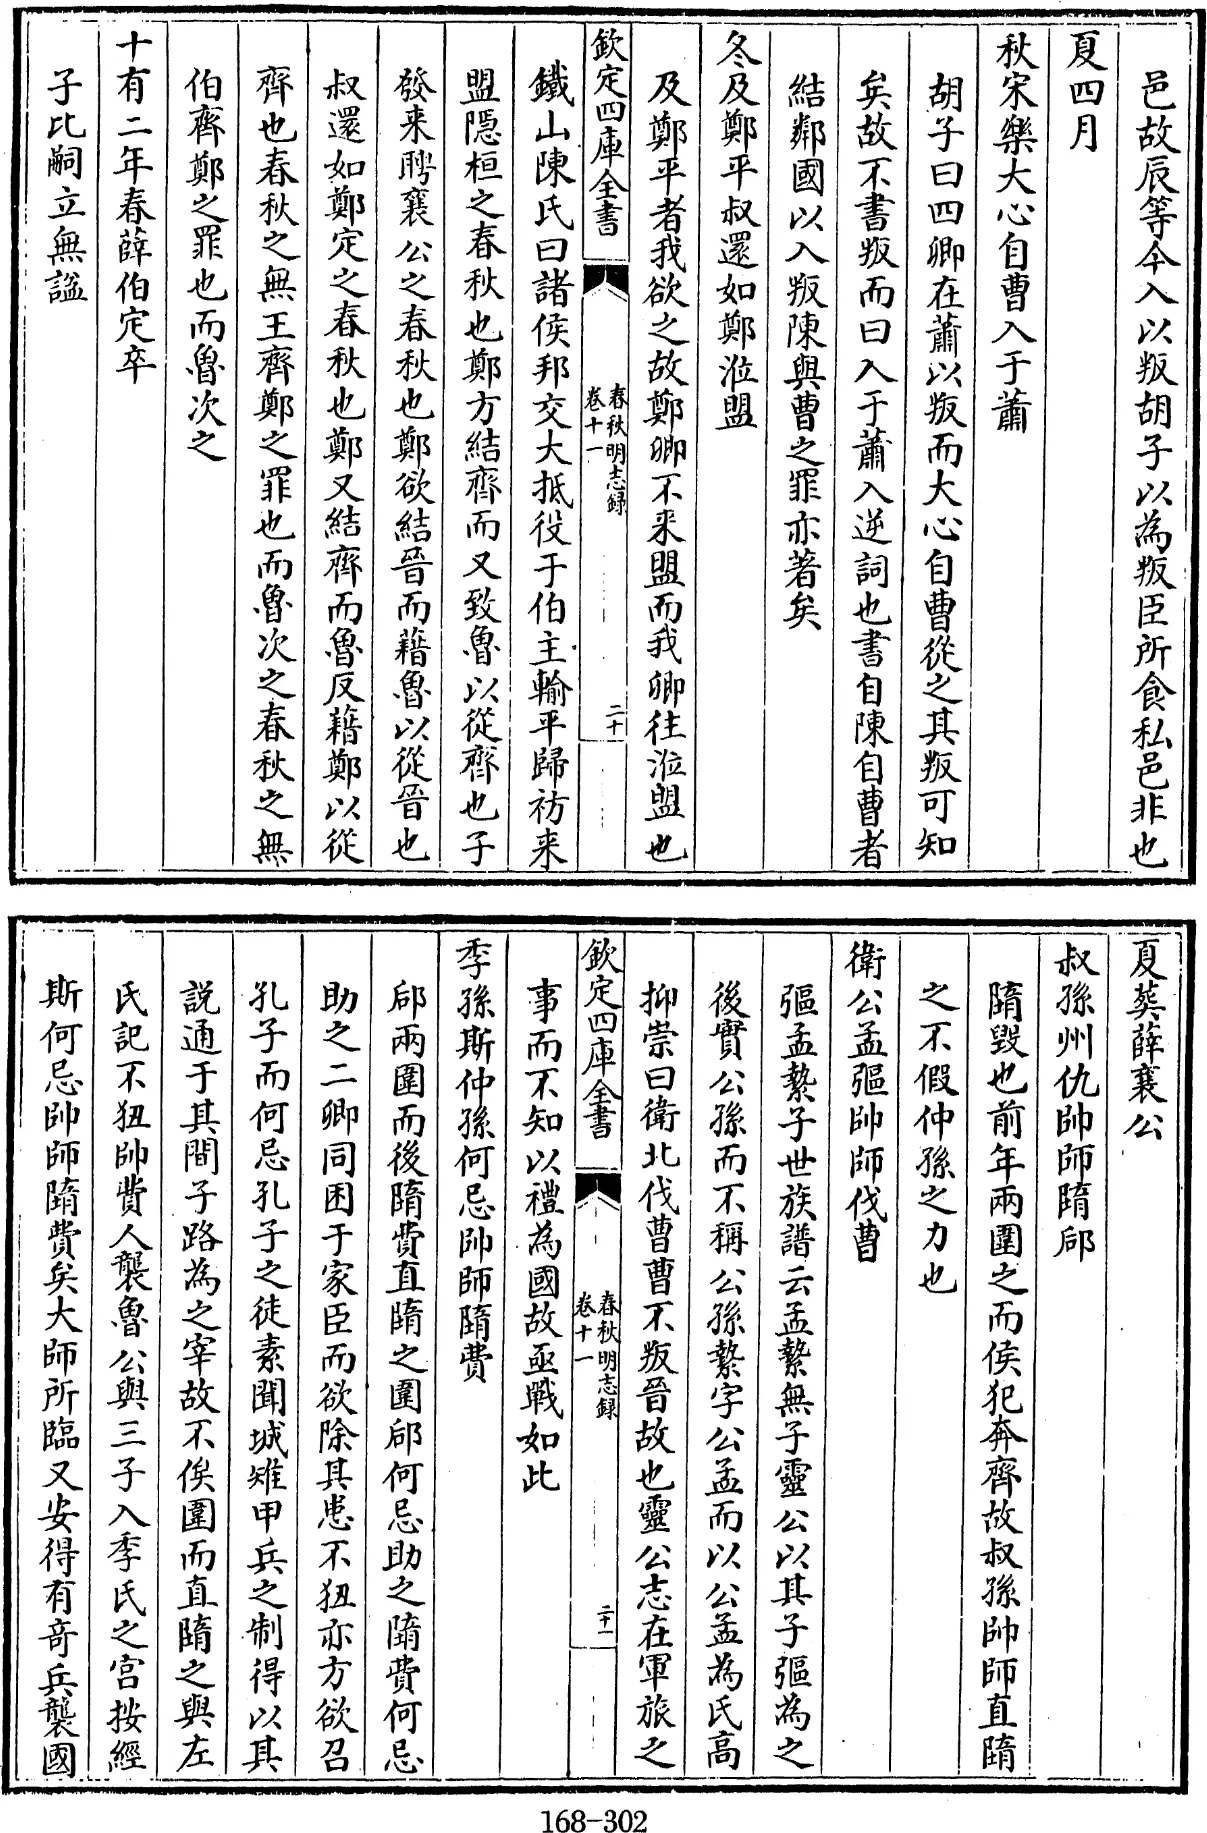 邑故辰等今入以叛胡子以為叛臣所食私邑非也
夏四月
秋宋樂大心自曹入于蕭
胡子曰四卿在蕭以叛而大心自曹從之其叛可知
矣故不書叛而曰入于蕭入逆詞也書自陳自曹者
結鄰國以入叛陳與曹之罪亦著矣
冬及鄭平叔還如鄭涖盟
及鄭平者我欲之故鄭卿不来盟而我卿往涖盟也
欽定四庫全書
春秋明志録
卷十一
二十
鐵山陳氏曰諸侯邦交大抵役于伯主輸平歸祊来
盟隠桓之春秋也鄭方結齊而又致魯以從齊也子
發来聘襄公之春秋也鄭欲結晉而藉魯以從晉也
叔還如鄭定之春秋也鄭又結齊而魯反藉鄭以從
齊也春秋之無王齊鄭之罪也而魯次之春秋之無
伯齊鄭之罪也而魯次之
十有二年春薛伯定卒
子比嗣立無諡
夏葬薛襄公
叔孫州仇帥師隋郈
隋毁也前年兩圍之而侯犯奔齊故叔孫帥師直隋
之不假仲孫之力也
衛公孟彄帥師伐曹
彄孟縶子世族譜云孟縶無子靈公以其子彄為之
後實公孫而不稱公孫縶字公孟而以公孟為氏高
抑崇曰衛北伐曹曹不叛晉故也靈公志在軍旅之
欽定四庫全書
春秋明志録
卷十一
二十一
事而不知以禮為國故亟戰如此
季孫斯仲孫何忌帥師隋費
郈兩圍而後隋費直隋之圍郈何忌助之隋費何忌
助之二卿同困于家臣而欲除其患不狃亦方欲召
孔子而何忌孔子之徒素聞城雉甲兵之制得以其
説通于其間子路為之宰故不俟圍而直隋之與左
氏記不狃帥費人襲魯公與三子入季氏之宫按經
斯何忌帥師隋費矣大師所臨又安得有竒兵襲國
168-302